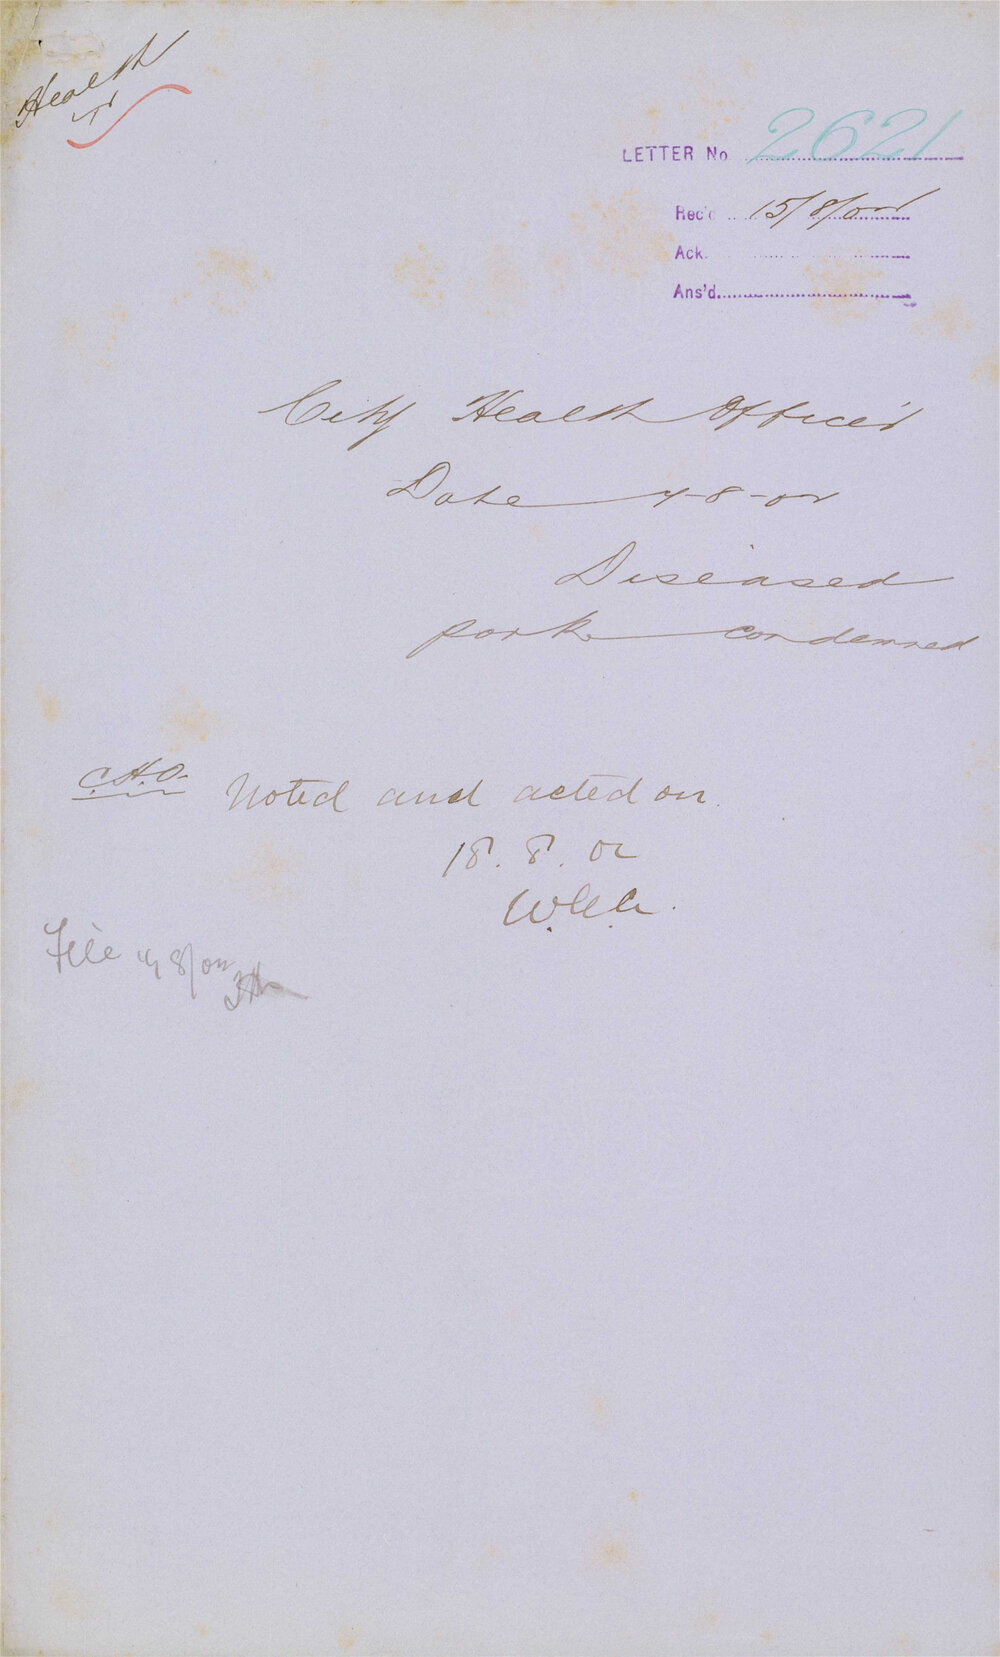 Health
LETTER No 2621
Rec'd 15/8/02
Ack.
Ans'd
City Health Officer
Date 7-8-02
Diseased
pork condemned
C.H.O. Noted and acted on.
18.8.02
File 19/8/02